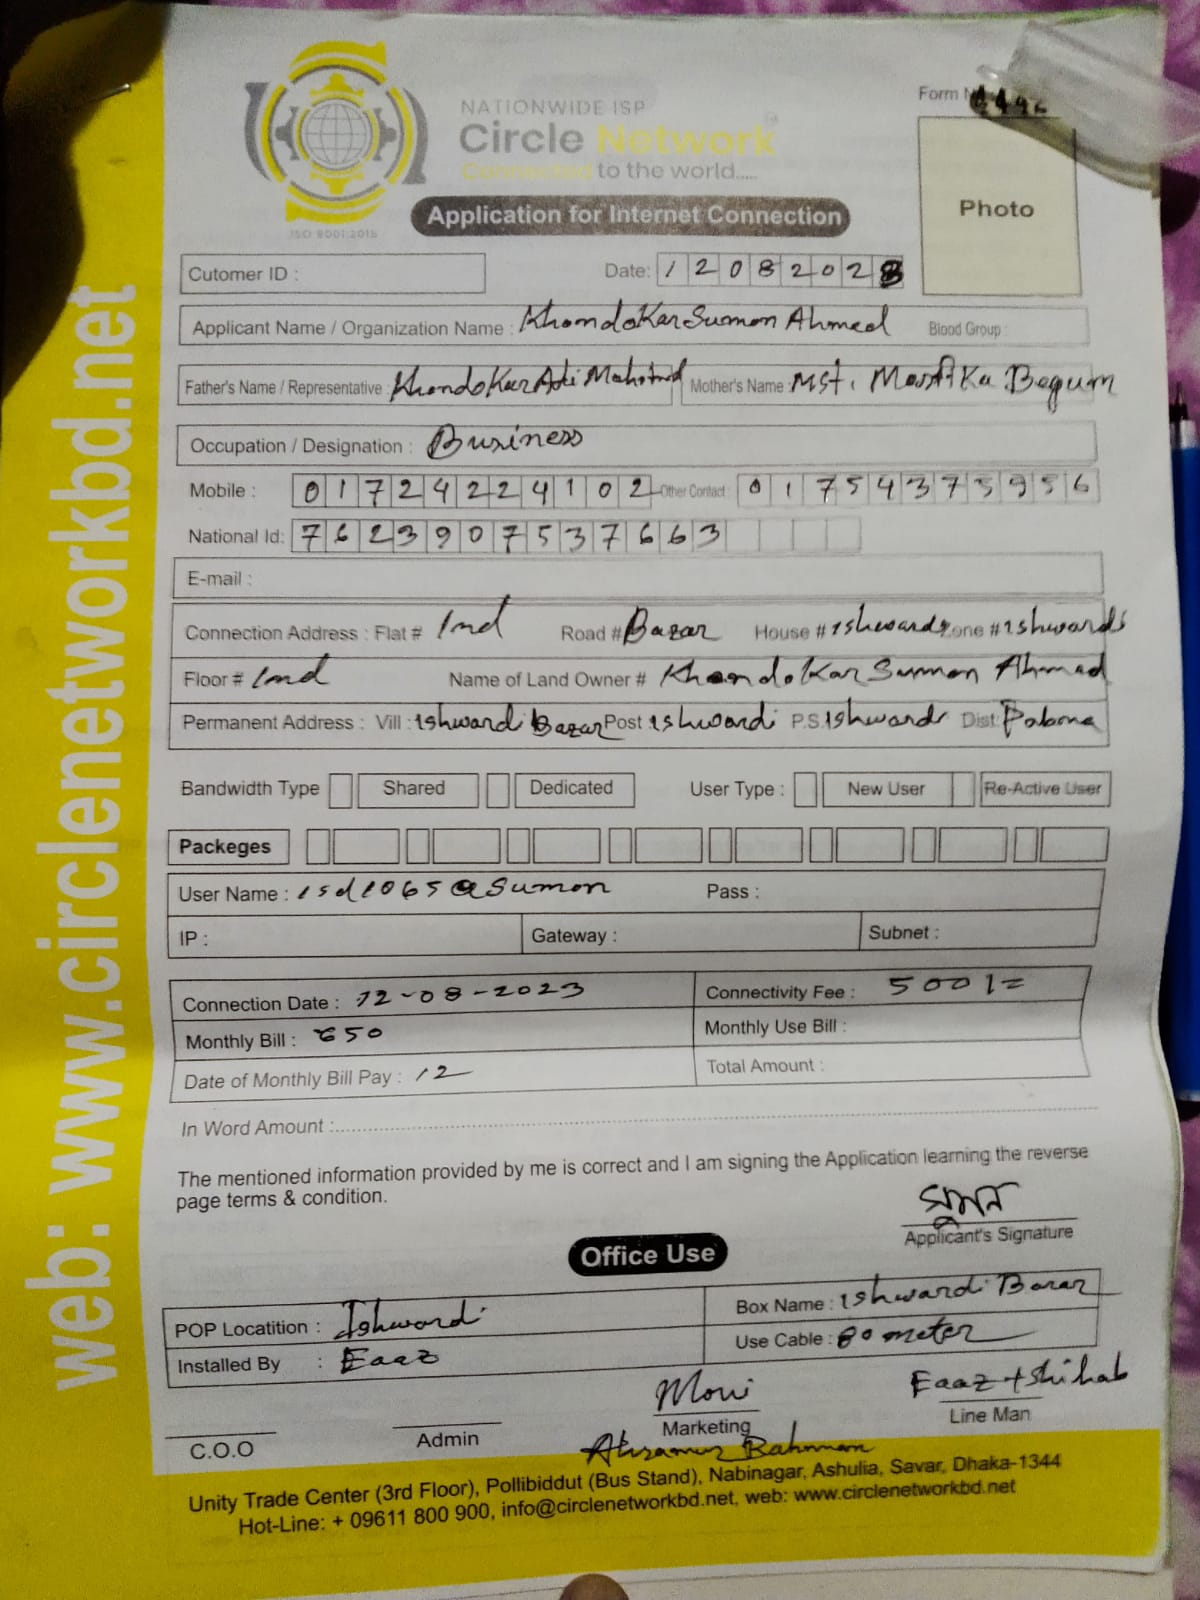 NATIONWIDE ISP
Circle Network
Connected to the world.....
ISO 9001:2015
Form
Application for Internet Connection
Photo
Cutomer ID :
Date: 12082023
Applicant Name / Organization Name : Khondokar Sumon Ahmed Blood Group :
Father's Name / Representative : Khondokar Mother's Name : MST. Begum
Occupation / Designation : Business
Mobile : 01724224102 Other Contact : 01754375956
National Id: 7623907537663
E-mail :
Connection Address : Flat # 2nd Road # Bazar House # ishwardi Zone # ishwardi
Floor # 2nd Name of Land Owner # Khondokar Sumon Ahmed
Permanent Address : Vill : ishwardi Bazar Post ishwardi P.S. ishwardi Dist: Pabna
Bandwidth Type Shared Dedicated User Type : New User Re-Active User
Packeges
User Name : isd1065@Sumon Pass :
IP : Gateway : Subnet :
Connection Date : 12-08-2023 Connectivity Fee : 500/=
Monthly Bill : 650 Monthly Use Bill :
Date of Monthly Bill Pay : 12 Total Amount :
In Word Amount :
The mentioned information provided by me is correct and I am signing the Application learning the reverse
page terms & condition.
সুমন
Applicant's Signature
Office Use
POP Locatition : Ishwardi Box Name : ishwardi Bazar
Installed By : Eaaz Use Cable : 80 meter
Moni Eaaz + Shihab
C.O.O Admin Marketing Line Man
Unity Trade Center (3rd Floor), Pollibiddut (Bus Stand), Nabinagar, Ashulia, Savar, Dhaka-1344
Hot-Line: + 09611 800 900, info@circlenetworkbd.net, web: www.circlenetworkbd.net
web: www.circlenetworkbd.net